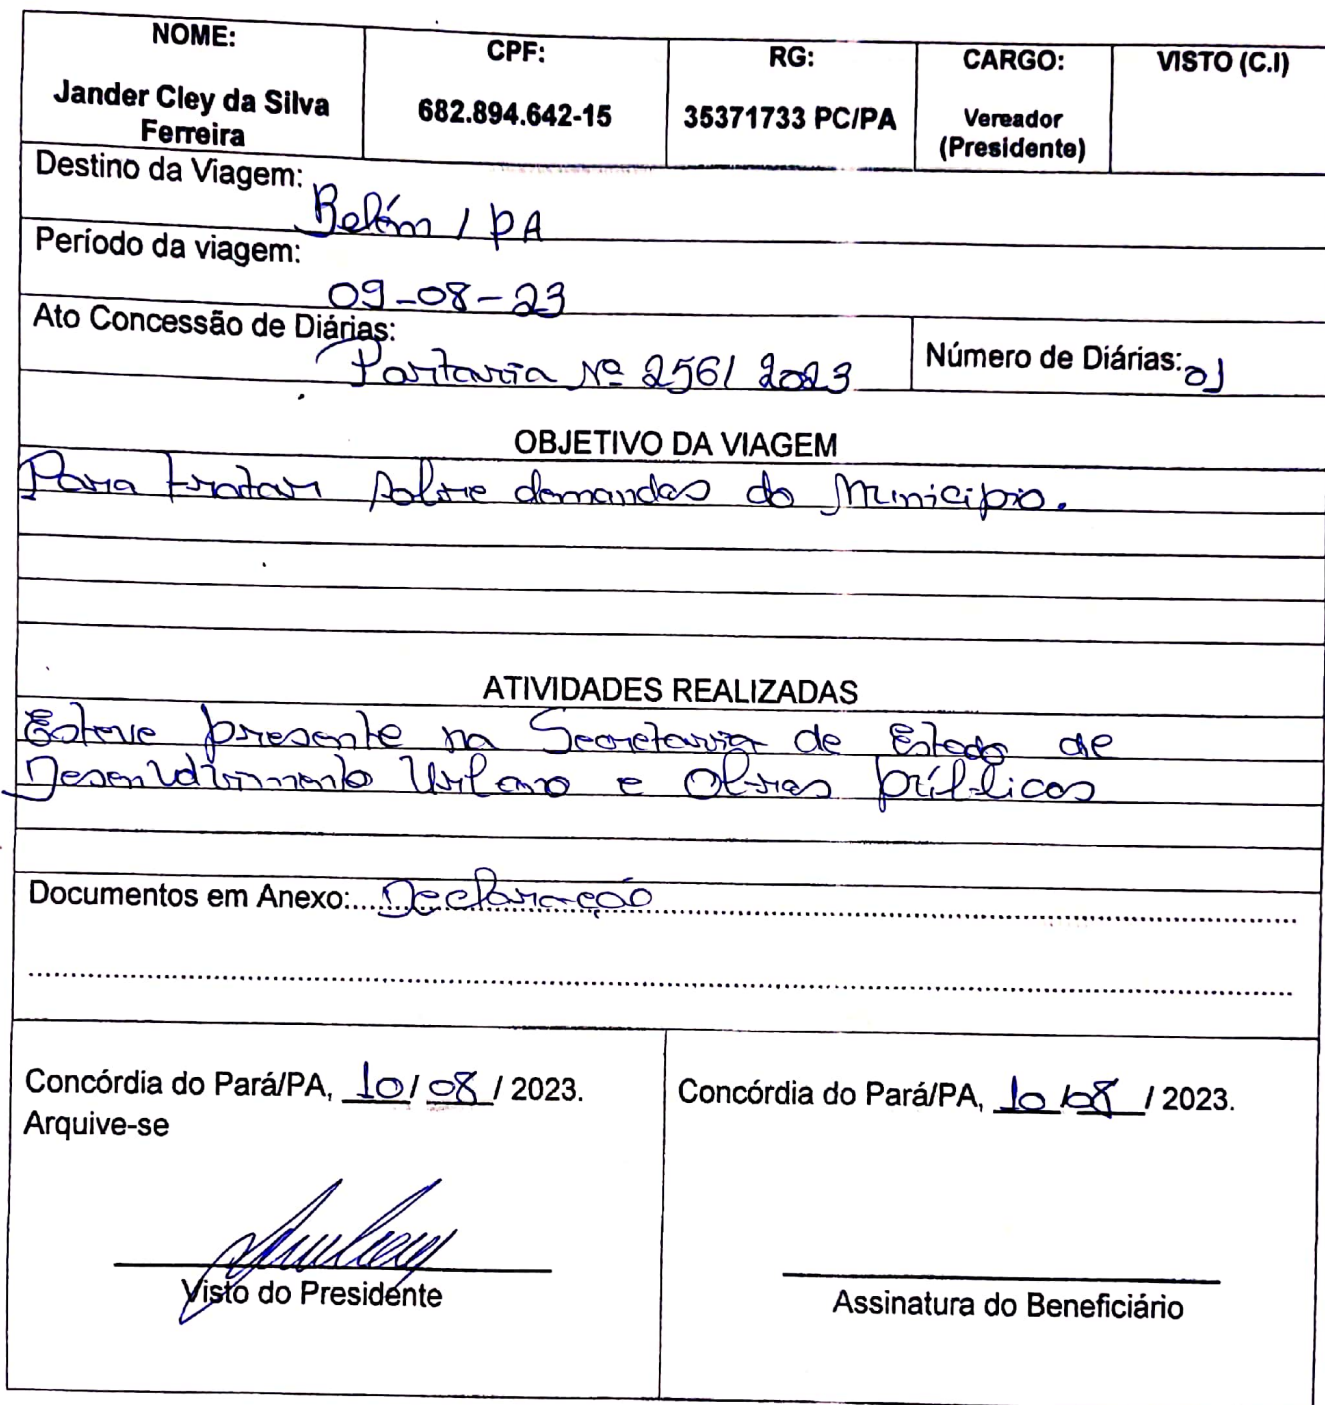 NOME: CPF: RG: CARGO: VISTO (C.I)
Jander Cley da Silva Ferreira 682.894.642-15 35371733 PC/PA Vereador (Presidente)
Destino da Viagem: Belém / PA
Período da viagem: 09-08-23
Ato Concessão de Diárias: Portaria Nº 256/2023 Número de Diárias: 01
OBJETIVO DA VIAGEM
Para tratar sobre demandas do Município.
ATIVIDADES REALIZADAS
Esteve presente na Secretaria de Estado de
Desenvolvimento Urbano e Obras públicas
Documentos em Anexo: Declaração
Concórdia do Pará/PA, 10/08/2023.
Arquive-se
Visto do Presidente
Concórdia do Pará/PA, 10/08/2023.
Assinatura do Beneficiário